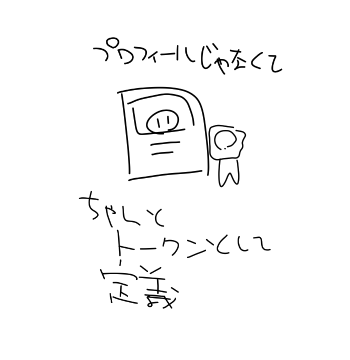 プロフィールじゃなくて
ちゃんと
トークンとして
定義